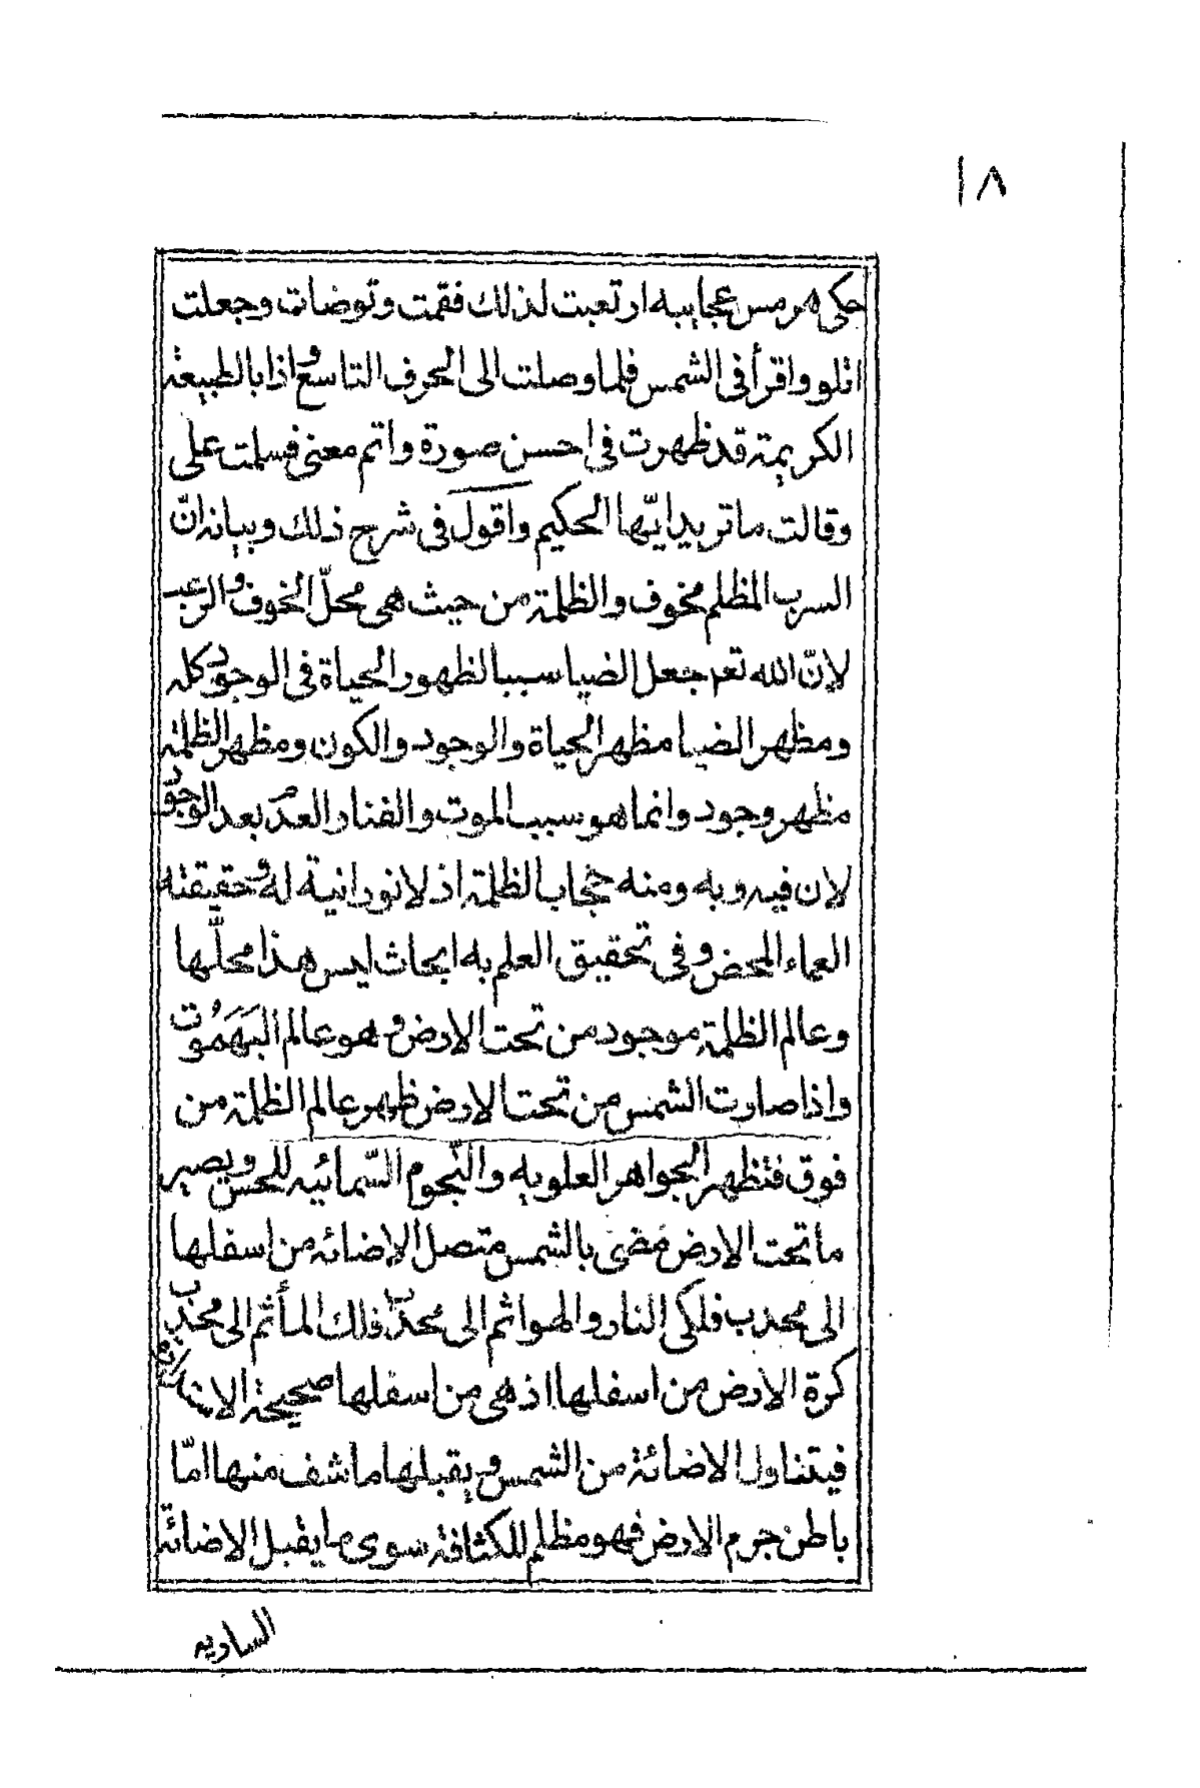 ١٨
حكى هرمس عجايبه ارتعبت لذلك فقمت وتوضات وجعلت
اتلو واقرأ فى الشمس فلما وصلت الى الحرف التاسع واذا بالطبيعة
الكريمة قد ظهرت فى احسن صورة واتم معنى فسلمت على
وقالت ما تريد ايّها الحكيم واقول فى شرح ذلك وبيانه انّ
السرب المظلم مخوف والظلمة من حيث هى محلّ الخوف والرعب
لانّ الله تعم جعل الضيا سببا لظهور الحياة فى الوجود كله
ومظهر الضيا مظهر الحياة والوجود والكون ومظهر الظلمة
مظهر وجود وانما هو سبب الموت والفنا والعدم بعد الوجود
لان فيه وبه ومنه حجاب الظلمة اذ لا نورانية له وحقيقته
العماء المحض وفى تحقيق العلم به ابحاث ليس هذا محلّها
وعالم الظلمة موجود من تحت الارض وهو عالم البَهَمُوت
واذا صارت الشمس من تحت الارض ظهر عالم الظلمة من
فوق فتظهر الجواهر العلويه والنّجوم السّمائيه للحس ويصير
ما تحت الارض مضى بالشمس متصل الاضائه من اسفلها
الى محدب فلكى النار والهوا ثم الى محدّب فلك المأ ثم الى محدّب
كرة الارض من اسفلها اذ هى من اسفلها صحيحة الاستدارة
فيتناول الاضائة من الشمس ويقبلها ما شف منها امّا
باطن جرم الارض فهو مظلم للكثافة سوى ما يقبل الاضائة
الساريه